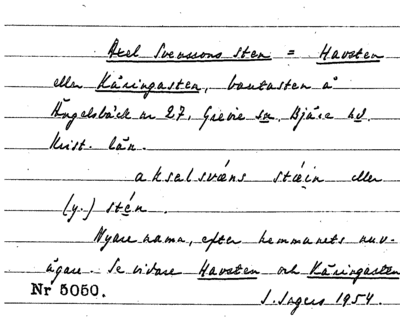 Axel Svenssons sten = Havsten
eller Käringasten, bautasten å
Ängelsbäck nr 27, Grevie sn. Bjäre hd.
Krist. län.
aksalsvæns stæin eller
(y.) stén.
Nyare namn, efter hemmanets nuv.
ägare. Se vidare Havsten och Käringasten
Nr 5050.
S. Ingers 1954.